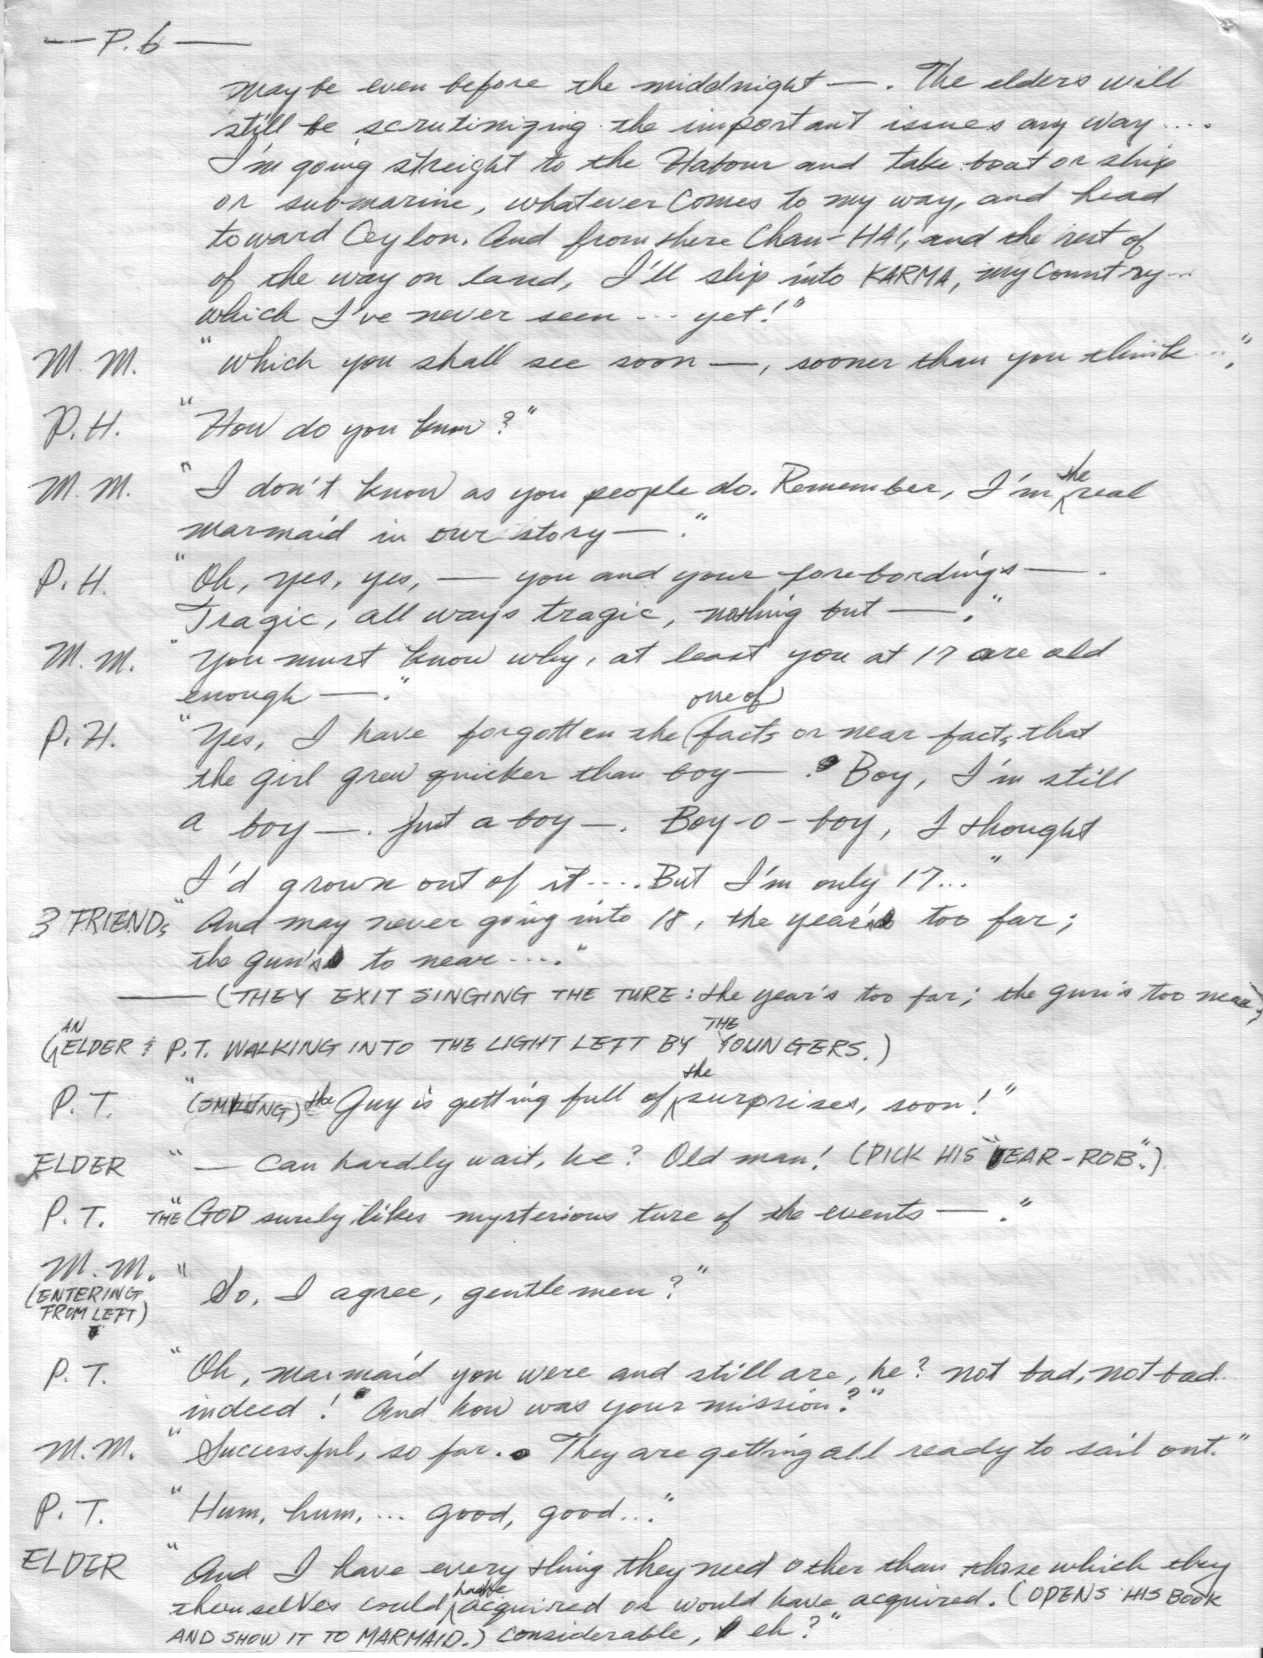 — P. 6 —
maybe even before the middnight —. The elders will
still be scrutinizing the important issues any way ....
I'm going streight to the Habour and take boat or ship
or submarine, whatever comes to my way, and head
toward Ceylon. And from there Chan-HAI, and the rest of
of the way on land, I'll slip into KARMA, my country...
which I've never seen ... yet!"
M. M. "which you shall see soon —, sooner than you think ...."
P. H. "How do you know?"
M. M. "I don't know as you people do. Remember, I'm the real
marmaid in our story — ."
P. H. "Oh, yes, yes, — you and your forebordings — .
Tragic, all ways tragic, nothing but — ."
M. M. "You must know why, at least you at 17 are old
enough — ."
P. H. "Yes, I have forgotten the one of facts or near facts, that
the girl grew quicker than boy — . Boy, I'm still
a boy — . Just a boy — . Boy-o-boy, I thought
I'd grown out of it .... But I'm only 17..."
3 FRIENDs "And may never going into 18, the year's too far;
the gun's to near ...."
— (THEY EXIT SINGING THE TURE: the year's too far; the gun's too near)
(AN ELDER & P.T. WALKING INTO THE LIGHT LEFT BY THE YOUNGERS.)
P. T. "(SMILING) the Guy is getting full of the surprises, soon!"
ELDER "— can hardly wait, he? Old man! (PICK HIS "EAR-ROB".)
P. T. "THE GOD surely likes mysterious ture of the events — ."
M. M. (ENTERING FROM LEFT) "So, I agree, gentlemen?"
P. T. "Oh, marmaid you were and still are, he? not bad, not bad
indeed! And how was your mission?"
M. M. "Successful, so far. They are getting all ready to sail out."
P. T. "Hum, hum, ... good, good..."
ELDER "And I have every thing they need other than those which they
themselves could have acquired or would have acquired. (OPENS HIS BOOK
AND SHOW IT TO MARMAID.) considerable, eh?"